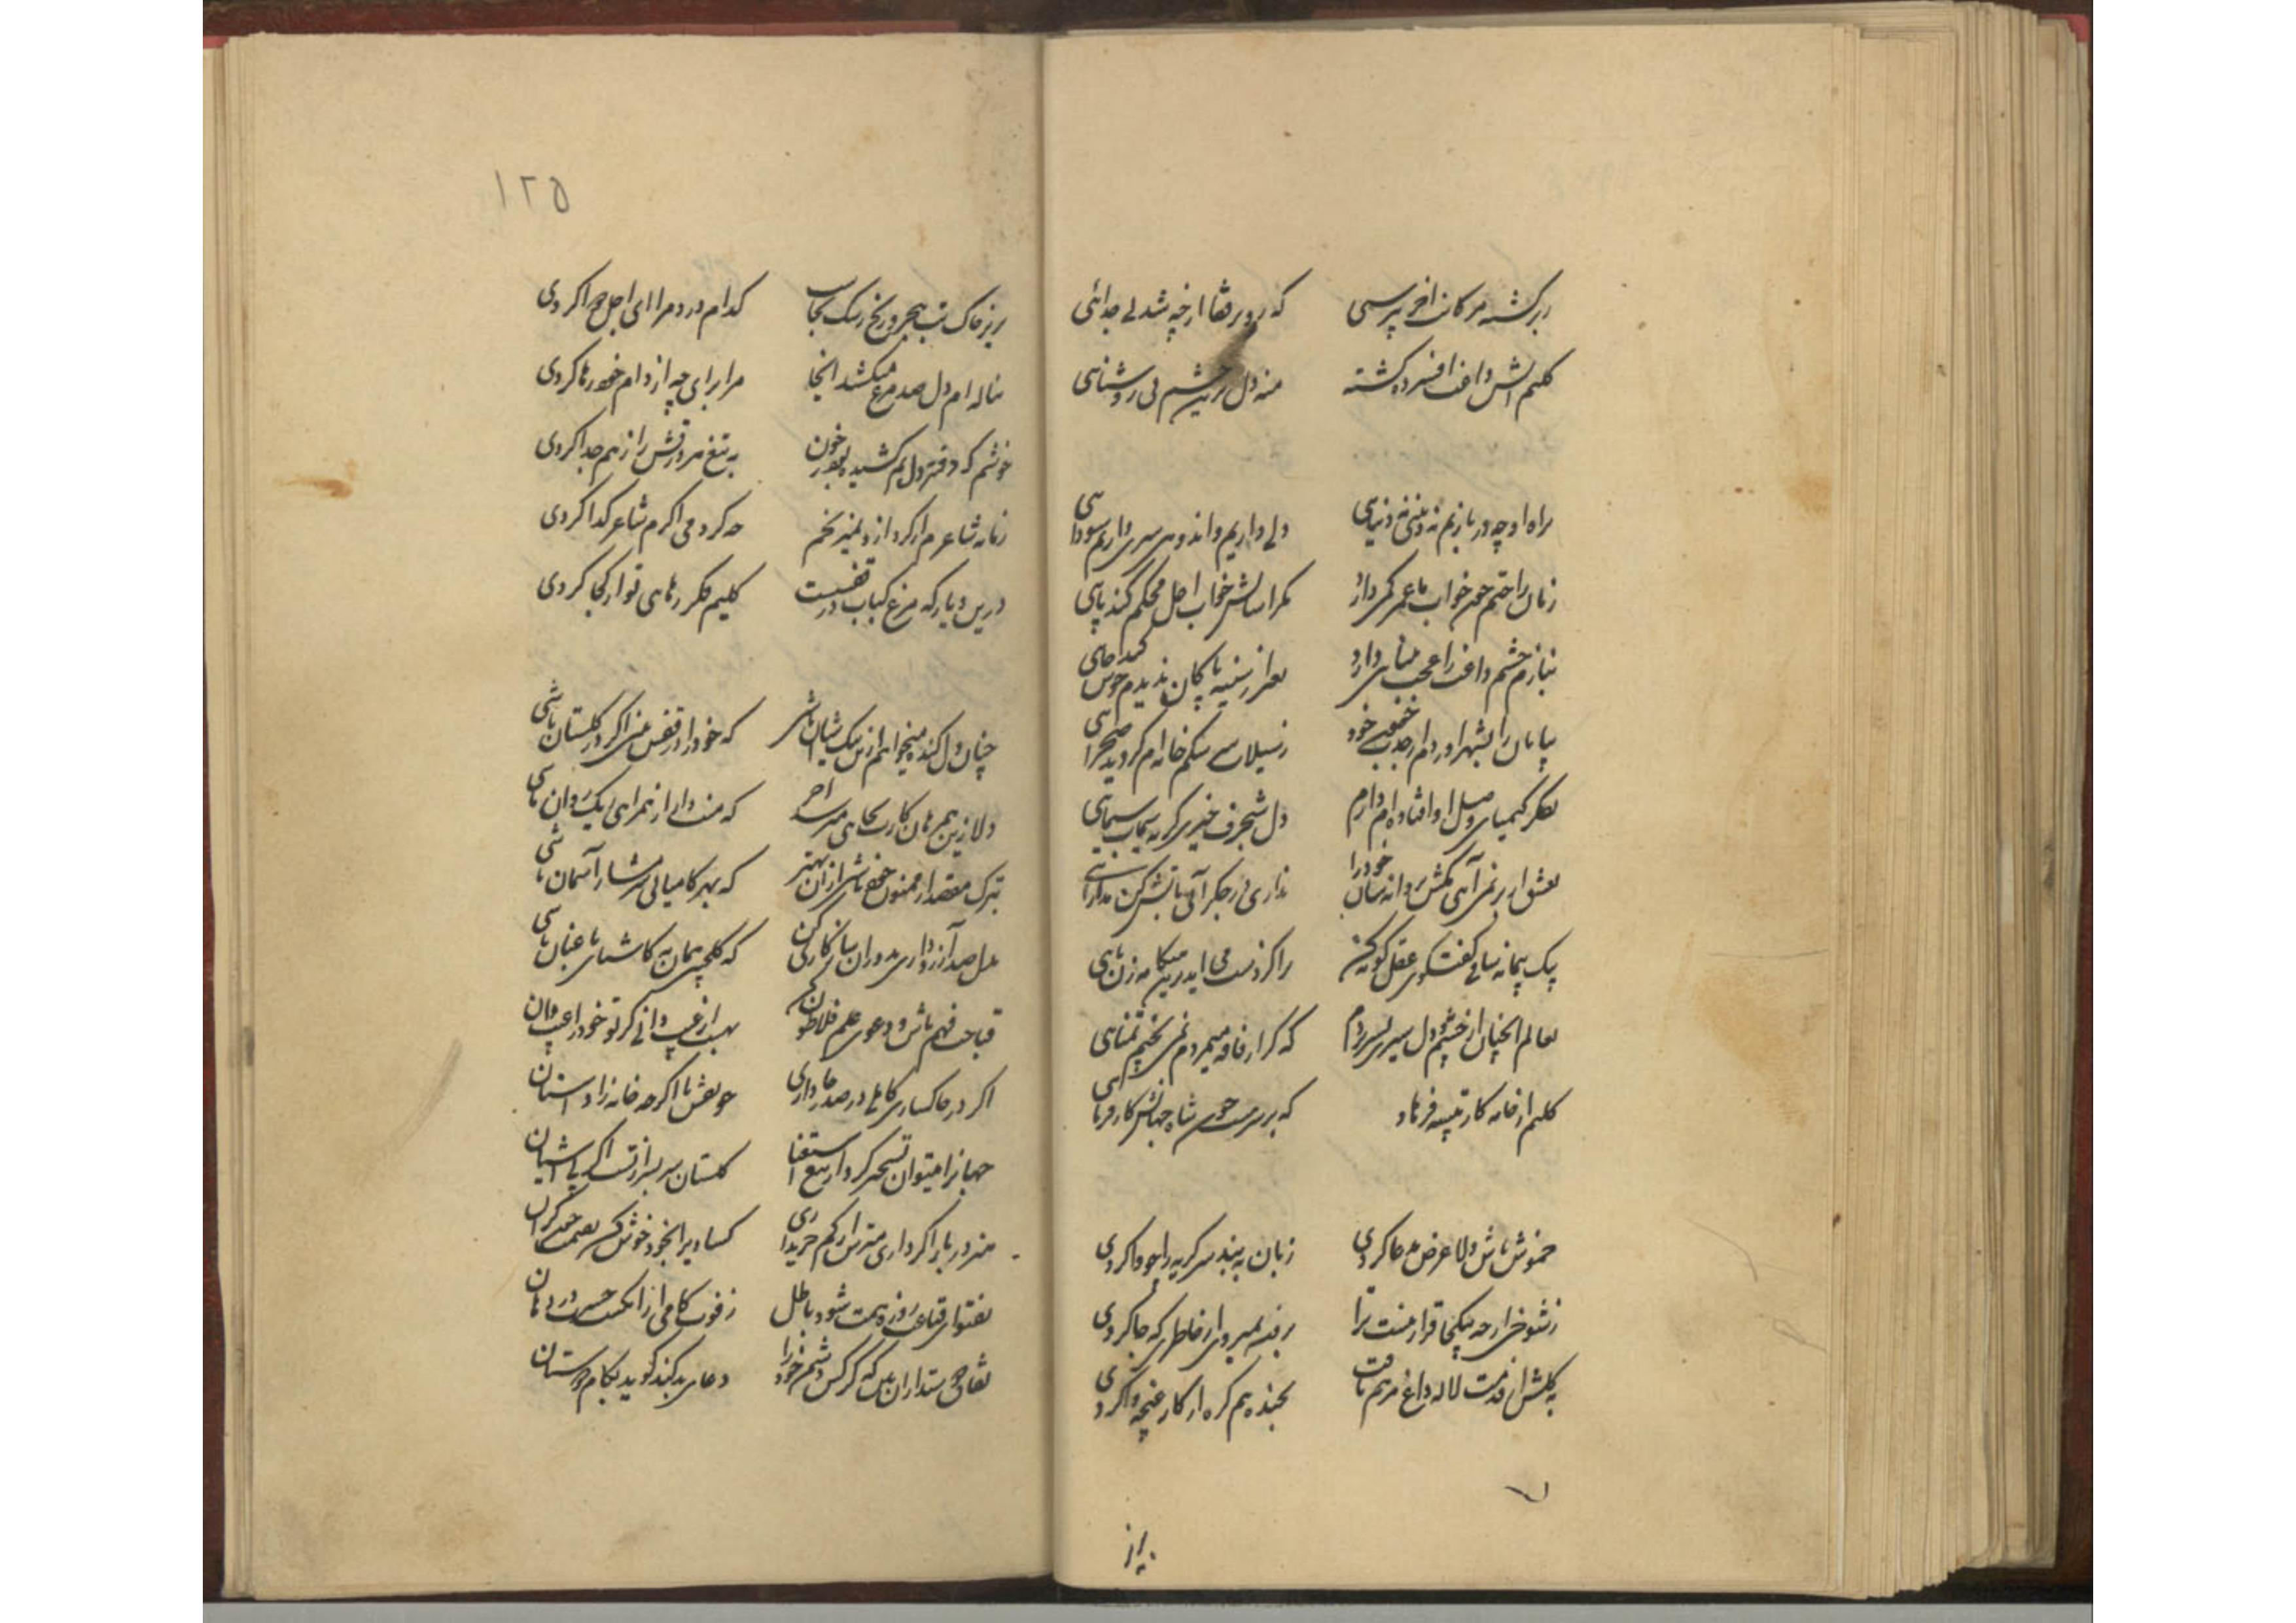 ز برگشته مژگانت آخر پرسی که رو بر قفا از چه شد بی جدائی
کلیم آتش داغت افسرده گشته منه دل برین چشم بی روشنائی
براه او چه در بازیم نه دینی نه دنیایی دلی داریم و اندوهی سری داریم سودایی
زمان راحتم چون خواب با عمر کمی دارد مگر آسایش خواب اجل محکم کند پایی
بنازم چشم داغت را عجب بینایی دارد بغیر از سینه پاکان ندیدم خوش کند جایی
بیابان را بشهر آورده‌ام از جذب خود ز سیلاب سرشکم خانه‌ام گردیده صحرایی
بفکر کیمیای وصل او افتاده‌ام دارم دل شنجرف خیز گریه سیماب سیمایی
بعشق ار بر نمی‌آیی مکش پروانه سان خود را نداری بر جگر آبی بآتش کن مدارایی
بیک پیمانه ساقی گفتگوی عقل کوته کن گر از دست می‌آید درین هنگامه زن پایی
بعالم آنچنان از چشم و دل سیری بسر بردم که گر از فاقه میمردم نمی‌پختم تمنایی
کلیم از خامه کار تیشه فرهاد که بر سر چون شاه جهانش کارفرمایی
خموش باش دلا عرض مدعا کردی زبان به بند سر گریه را چو وا کردی
ز شوخی ار چه بیکجا قرار نیست ترا نمیروی از خاطری که جا کردی
به گلشن از قدمت لاله داغ مرهم یافت بخنده هم گره از کار غنچه وا کردی
بریز
۱۲۵
بریز خاک تب هجر و رنج رشک بجاست کدام درد مرا ای اجل دوا کردی
بناله‌ام دل صد مرغ میکشد اینجا مرا برای چه از دام خود رها کردی
خوشم که دفتر دل هم کشیده بود بخون به تیغ هر ورقش را ز هم جدا کردی
زمانه شاعرم ار کرد از و نمیرنجم چه کردمی اگرم شاعر گدا کردی
درین دیار که مرغ کباب در قفسست کلیم فکر رهایی تو از کجا کردی
چنان دل کنده میخواهم ازین یک آشیان باشی که خود را در قفس بینی اگر در گلستان باشی
دلا زین همرهان کارت بجایی میرسد آخر که منت دار از همراهی ریگ روان باشی
بترک مقصد ار ممنون خود باشی از آن بهتر که بهر کامیابی شرمسار آسمان باشی
بدل صد آرزو داری بدوران سازگاری کن که گلچینی همان بهتر که آشنای باغبان باشی
قباحت فهم باش و دعوی علم فلاطون کن بهست از غیب دانی گر تو خود را عیب دان
اگر در خاکساری کاملی در صدر جا داری چو نقش پا اگر چه خانه زاد آستان
جهانرا میتوان تسخیر کرد از تیغ استغنا گلستان سربسر از تست اگر بی آشیان
هنر در بار اگر داری مترس از کم خریداری کسادی را بخود خوش کن بقیمت چون گران
بفتوای قناعت روزه همت شود باطل ز فوت کامی ار انگشت حسرت در دهان
نفاق دوستداران بین که گر کس دشمن خود را دعای بد کند گوید بکام دوستان